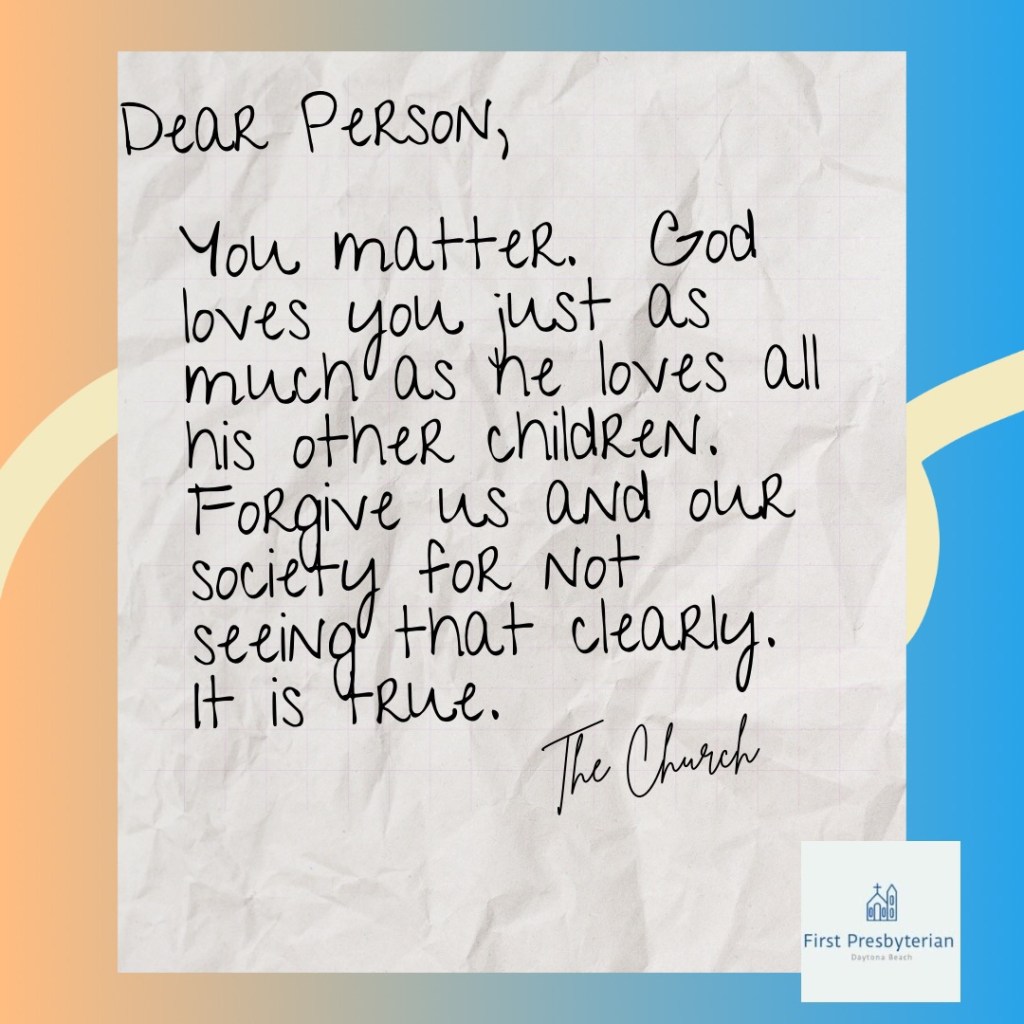 Dear Person,
You matter. God
loves you just as
much as he loves all
his other children.
Forgive us and our
society for not
seeing that clearly.
It is true.
The Church
First Presbyterian
Daytona Beach